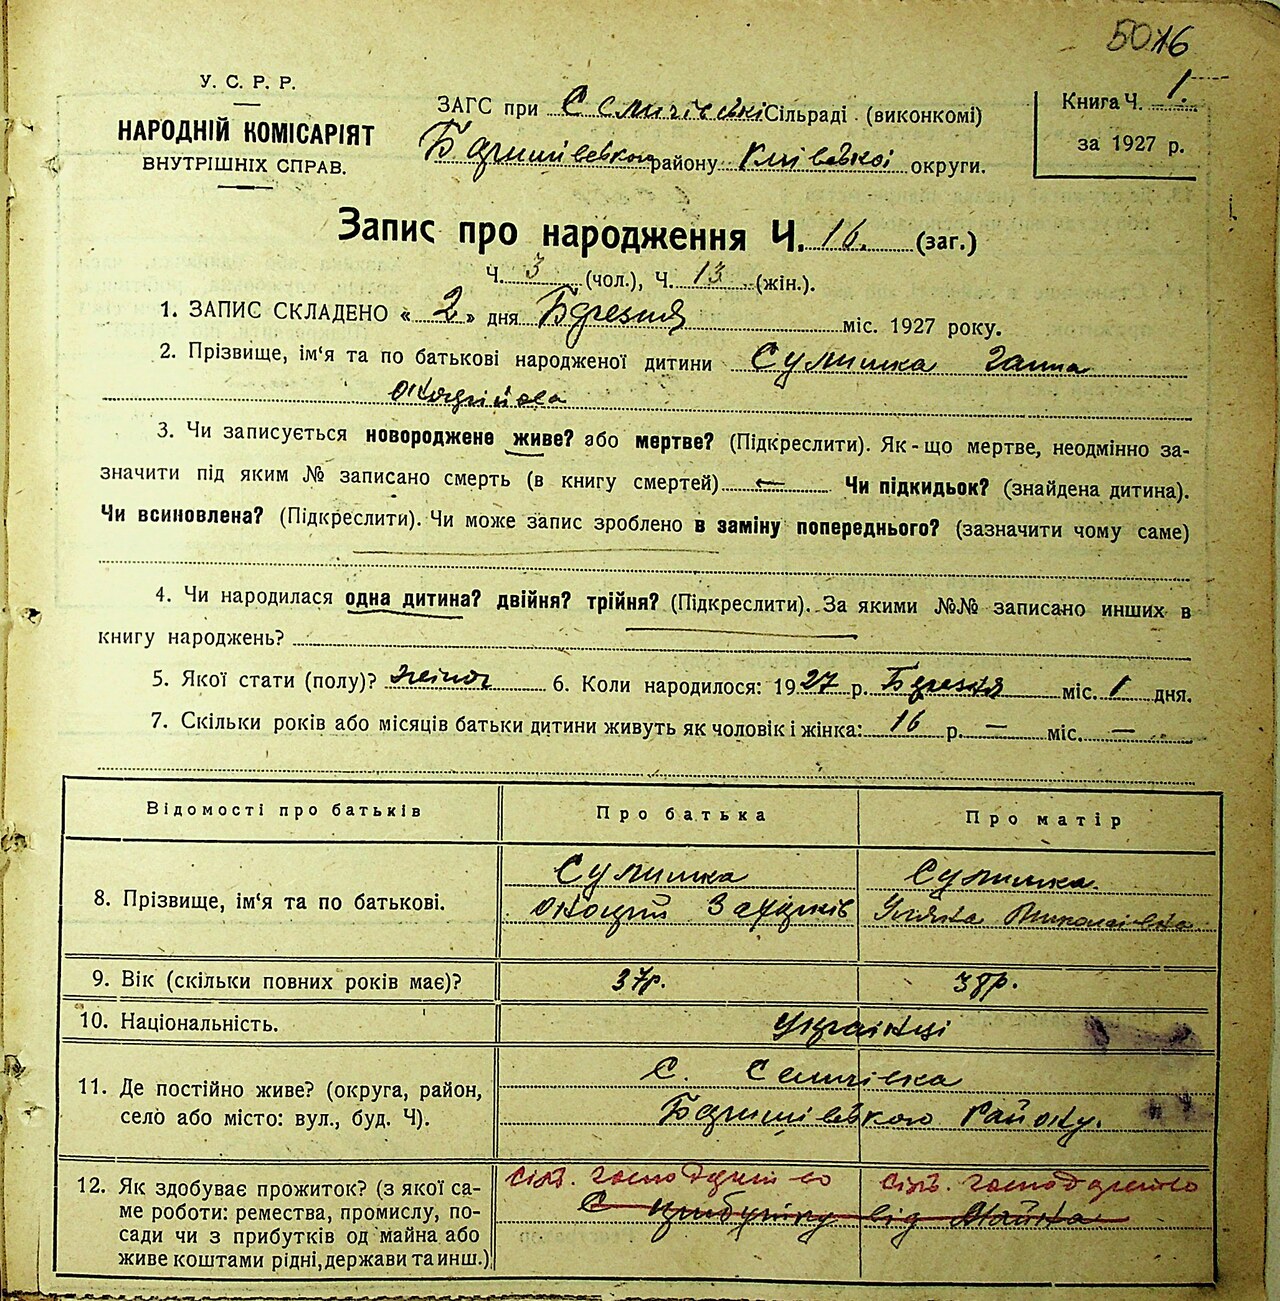 5016
У. С. Р. Р.
НАРОДНІЙ КОМІСАРІЯТ
ВНУТРІШНІХ СПРАВ.
ЗАГС при Сільраді (виконкомі)
Баришівському району Київської округи.
Книга Ч. 1.
за 1927 р.
Запис про народження Ч. 16. (заг.)
Ч. 3 (чол.), Ч. 13 (жін.).
1. ЗАПИС СКЛАДЕНО « 2 » дня Березня міс. 1927 року.
2. Прізвище, ім'я та по батькові народженої дитини Сулимка Ганна
3. Чи записується новороджене живе? або мертве? (Підкреслити). Як-що мертве, неодмінно за-
значити під яким № записано смерть (в книгу смертей) — Чи підкидьок? (знайдена дитина).
Чи всиновлена? (Підкреслити). Чи може запис зроблено в заміну попереднього? (зазначити чому саме)
4. Чи народилася одна дитина? двійня? трійня? (Підкреслити). За якими №№ записано инших в
книгу народжень?
5. Якої стати (полу)? жіноч 6. Коли народилося: 1927 р. Березня міс. 1 дня.
7. Скільки років або місяців батьки дитини живуть як чоловік і жінка: 16 р. — міс. —
Відомості про батьків Про батька Про матір
8. Прізвище, ім'я та по батькові. Сулимка Сулимка
Захарків Уляна Миколаївна
9. Вік (скільки повних років має)? 37р. 38р.
10. Національність. Українці
11. Де постійно живе? (округа, район, с. Селичівка
село або місто: вул., буд. Ч). Баришівського району.
12. Як здобуває прожиток? (з якої са- сіль. господарство сіль. господарство
ме роботи: ремества, промислу, по- С прибутку від майна
сади чи з прибутків од майна або
живе коштами рідні, держави та инш.)